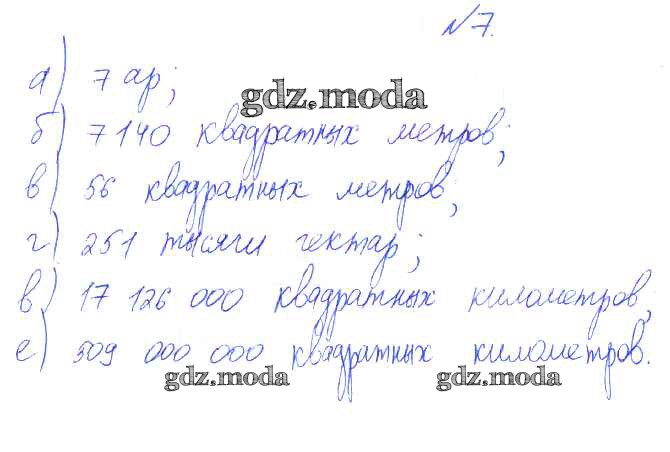 №7.
а) 7 ар;
gdz.moda
б) 7140 квадратных метров;
в) 56 квадратных метров;
г) 251 тысячи гектар;
в) 17 126 000 квадратных километров;
е) 509 000 000 квадратных километров.
gdz.moda gdz.moda